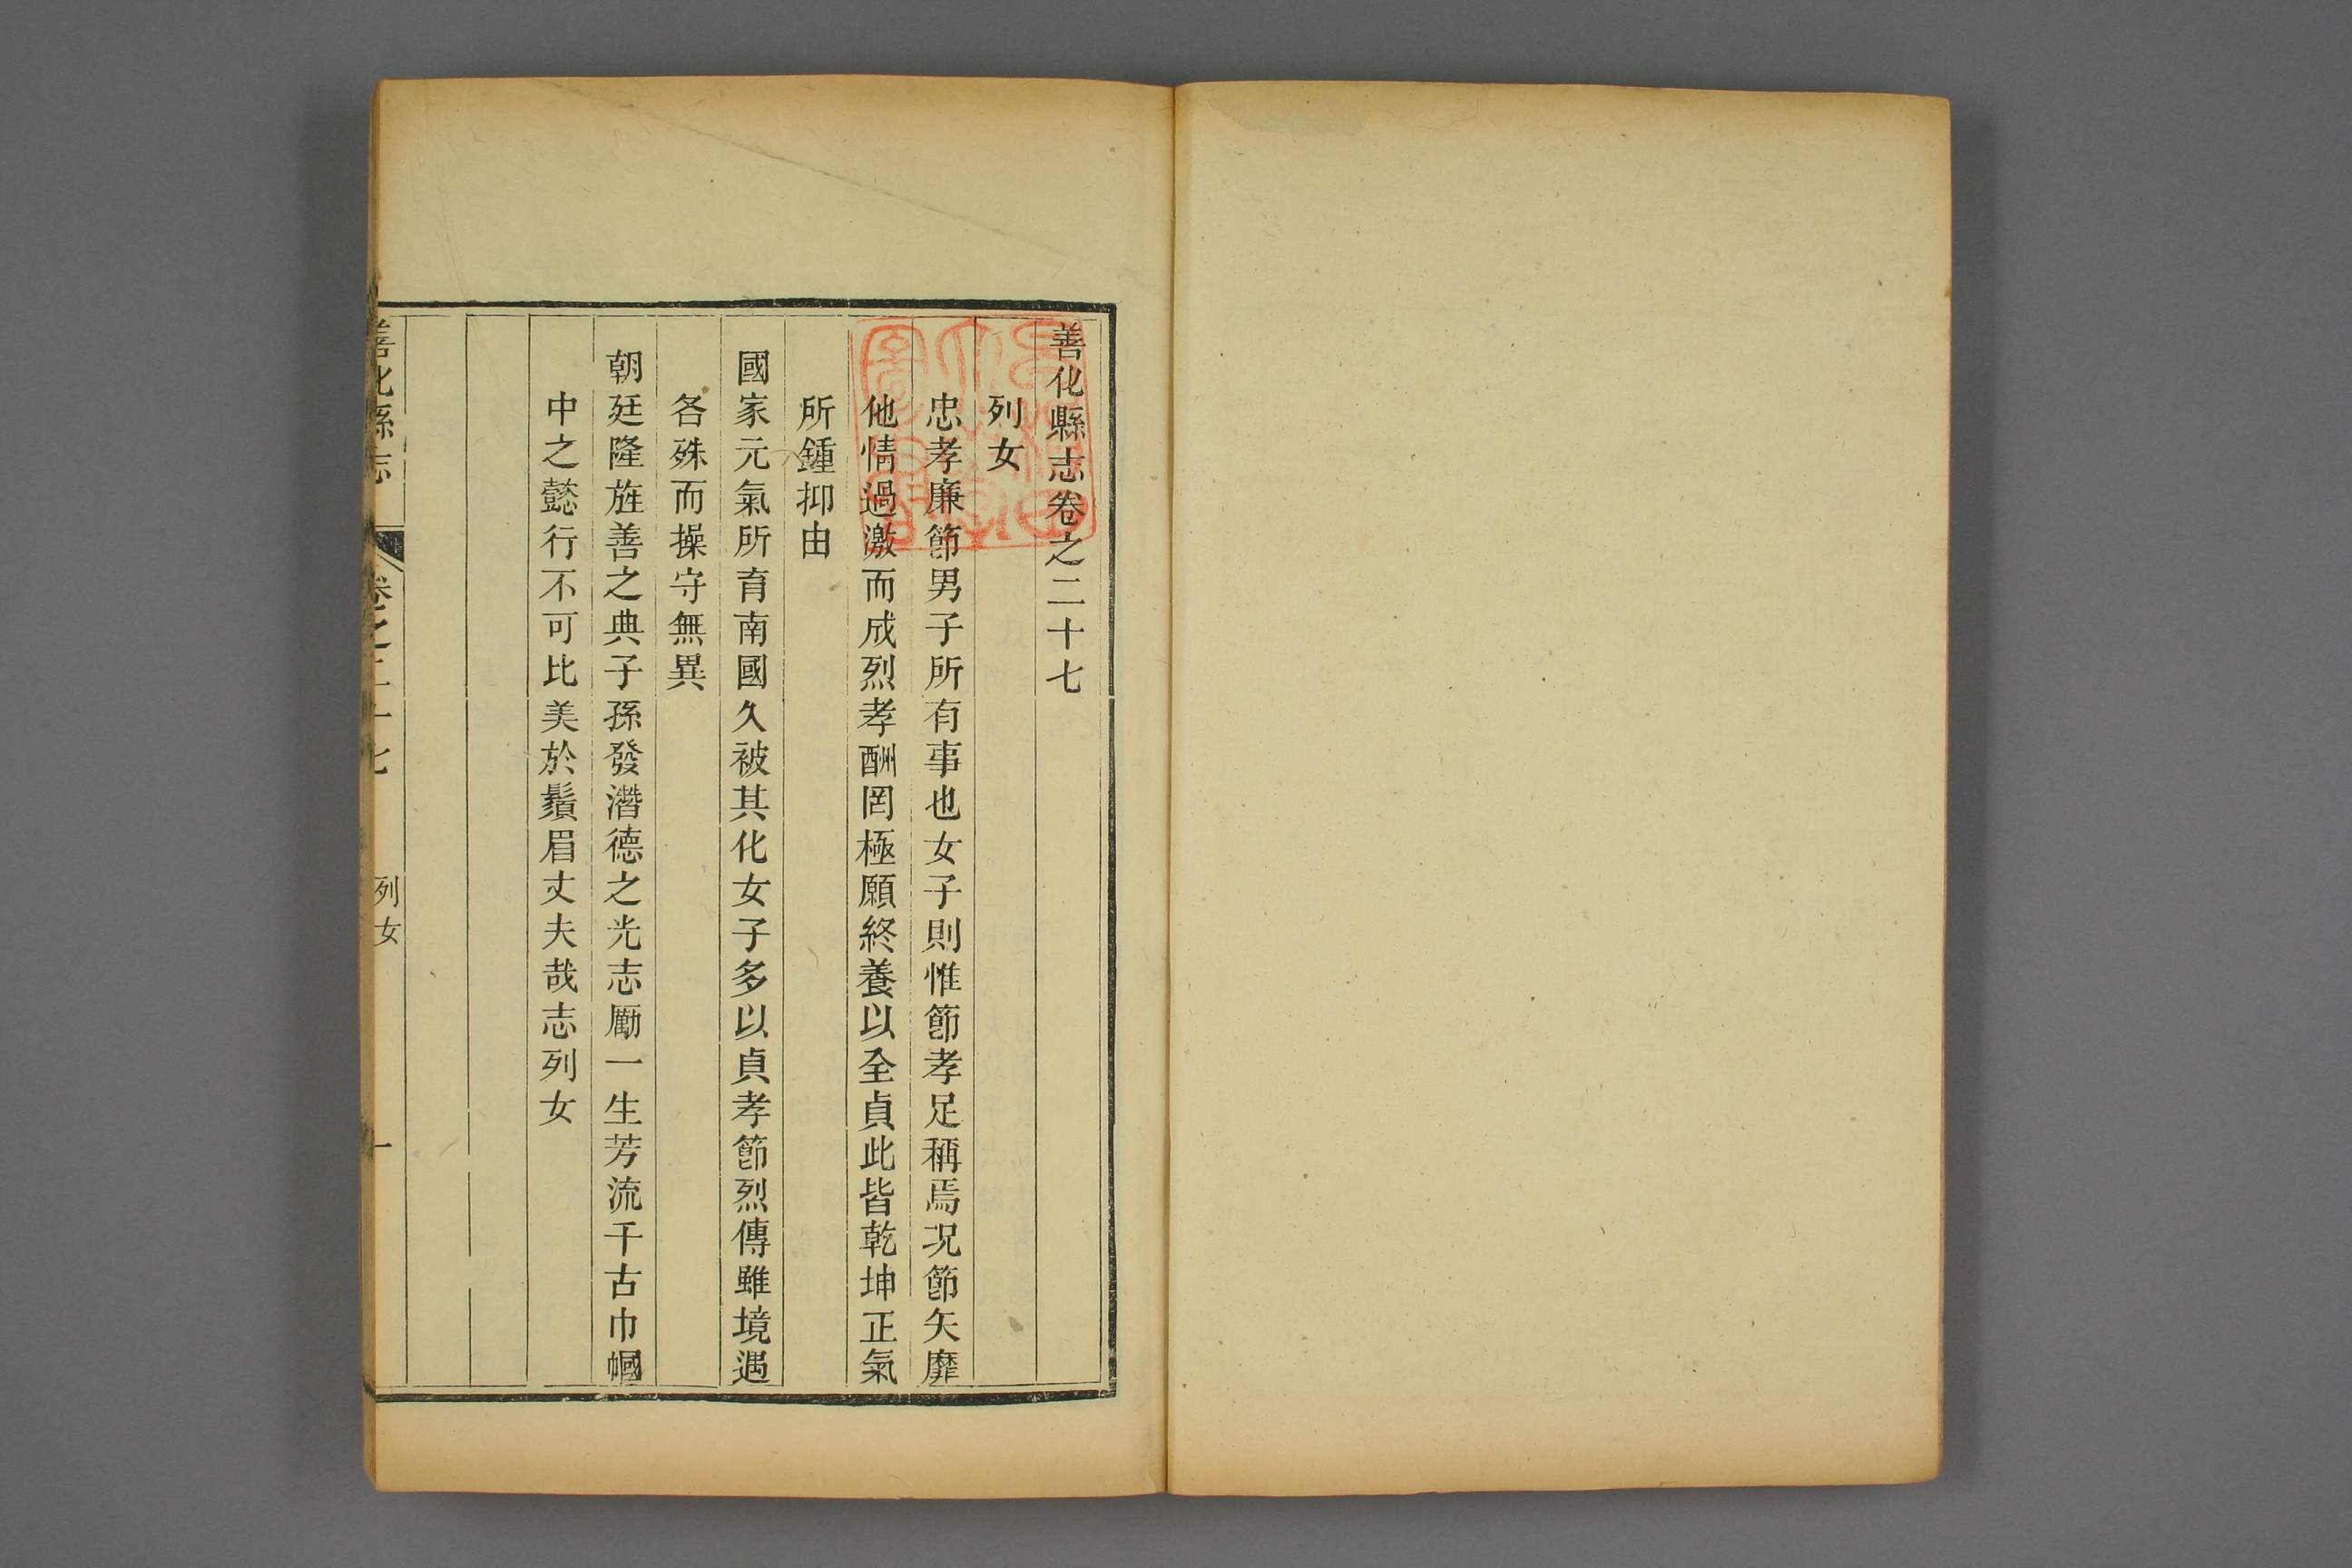 善化縣志卷之二十七
列女
忠孝廉節男子所有事也女子則惟節孝足稱焉况節矢靡
他情過激而成烈孝酬罔極願終養以全貞此皆乾坤正氣
所鍾抑由
國家元氣所育南國久被其化女子多以貞孝節烈傳雖境遇
各殊而操守無異
朝廷隆旌善之典子孫發潛德之光志勵一生芳流千古巾幗
中之懿行不可比美於鬚眉丈夫哉志列女
善化縣志
卷之二十七
列女
一